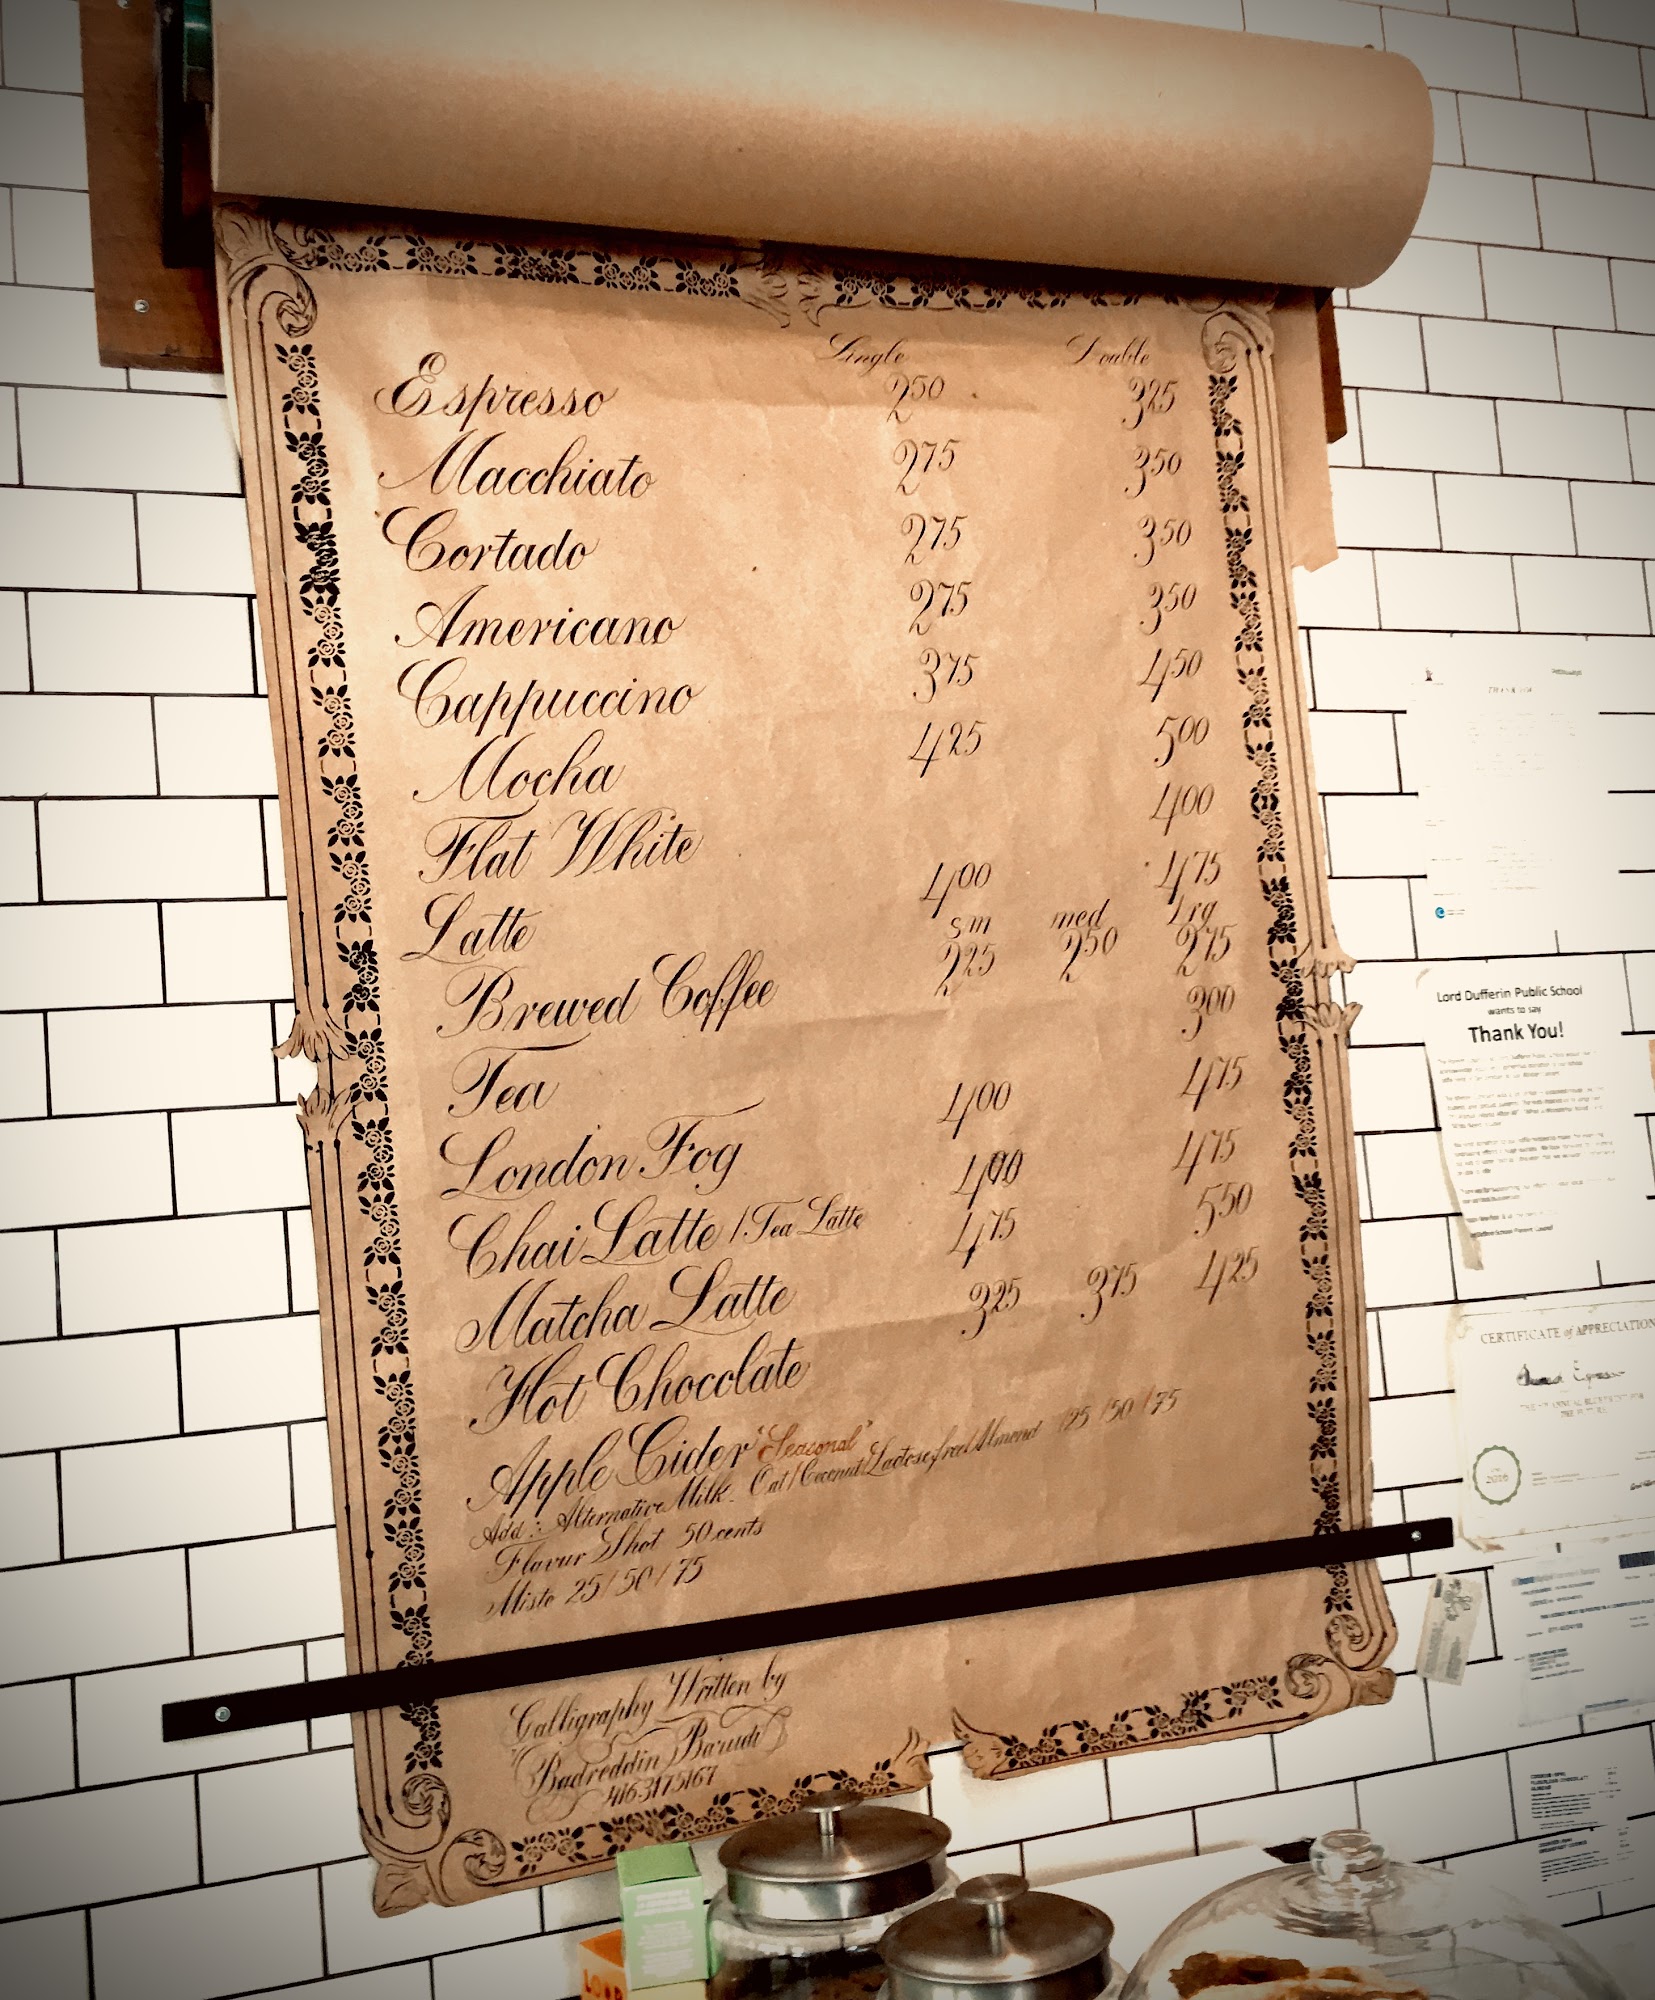 Single Double
Espresso 250 325
Macchiato 275 350
Cortado 275 350
Americano 275 350
Cappuccino 375 450
Mocha 425 500
Flat White 400
Latte 400 475
sm med lrg
Brewed Coffee 225 250 275
Tea 300
London Fog 400 475
Chai Latte / Tea Latte 400 475
Matcha Latte 475 550
Hot Chocolate 325 375 425
Apple Cider "Seasonal"
Add: Alternative Milk. Oat/Coconut/Lactosefree/Almond /25 /50 /75
Flavur Shot 50 cents
Misto 25/50/75
Calligraphy Written by
Badreddin Barudi
4163175167
Lord Dufferin Public School
wants to say
Thank You!
CERTIFICATE of APPRECIATION
2016